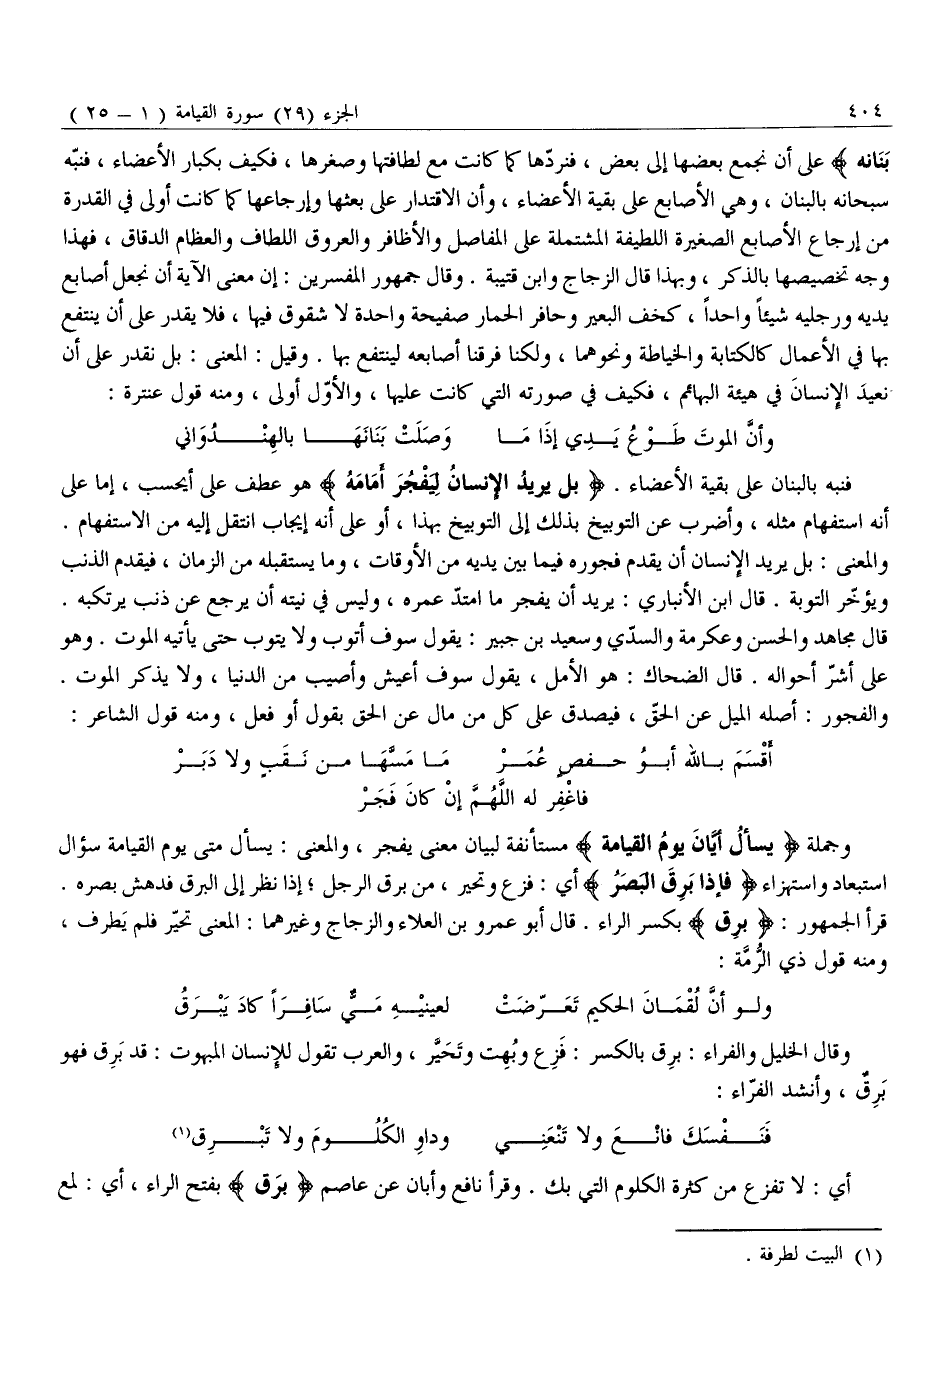 ٤٠٤ الجزء (٢٩) سورة القيامة ( ١ – ٢٥ )
بَنَانه ﴾ على أن نجمع بعضها إلى بعض ، فنردّها كما كانت مع لطافتها وصغرها ، فكيف بكبار الأعضاء ، فنبّه
سبحانه بالبنان ، وهي الأصابع على بقية الأعضاء ، وأن الاقتدار على بعثها وإرجاعها كما كانت أولى في القدرة
من إرجاع الأصابع الصغيرة اللطيفة المشتملة على المفاصل والأظافر والعروق اللطاف والعظام الدقاق ، فهذا
وجه تخصيصها بالذكر ، وبهذا قال الزجاج وابن قتيبة . وقال جمهور المفسرين : إن معنى الآية أن نجعل أصابع
يديه ورجليه شيئاً واحداً ، كخف البعير وحافر الحمار صفيحة واحدة لا شقوق فيها ، فلا يقدر على أن ينتفع
بها في الأعمال كالكتابة والخياطة ونحوهما ، ولكنا فرقنا أصابعه لينتفع بها . وقيل : المعنى : بل نقدر على أن
نعيدَ الإنسانَ في هيئة البهائم ، فكيف في صورته التي كانت عليها ، والأوّل أولى ، ومنه قول عنترة :
وأنَّ الموتَ طَوْعُ يَدِي إذَا مَا وَصَلَتْ بَنَانَهَا بالهِنْدُوَاني
فنبه بالبنان على بقية الأعضاء . ﴿ بل يريدُ الإنسانُ لِيَفْجُرَ أَمَامَهُ ﴾ هو عطف على أيحسب ، إما على
أنه استفهام مثله ، وأضرب عن التوبيخ بذلك إلى التوبيخ بهذا ، أو على أنه إيجاب انتقل إليه من الاستفهام .
والمعنى : بل يريد الإنسان أن يقدم فجوره فيما بين يديه من الأوقات ، وما يستقبله من الزمان ، فيقدم الذنب
ويؤخّر التوبة . قال ابن الأنباري : يريد أن يفجر ما امتدّ عمره ، وليس في نيته أن يرجع عن ذنب يرتكبه .
قال مجاهد والحسن وعكرمة والسدّي وسعيد بن جبير : يقول سوف أتوب ولا يتوب حتى يأتيه الموت . وهو
على أشرّ أحواله . قال الضحاك : هو الأمل ، يقول سوف أعيش وأصيب من الدنيا ، ولا يذكر الموت .
والفجور : أصله الميل عن الحقّ ، فيصدق على كل من مال عن الحق بقول أو فعل ، ومنه قول الشاعر :
أَقْسَمَ بالله أبوُ حفصٍ عُمَرْ مَا مَسَّهَا من نَقَبٍ ولا دَبَرْ
فاغْفِر له اللَّهُمَّ إنْ كانَ فَجَرْ
وجملة ﴿ يسألُ أيَّانَ يومُ القيامة ﴾ مستأنفة لبيان معنى يفجر ، والمعنى : يسأل متى يوم القيامة سؤال
استبعاد واستهزاء ﴿ فإذا بَرِقَ البَصَرُ ﴾ أي : فزع وتحير ، من برق الرجل ؛ إذا نظر إلى البرق فدهش بصره .
قرأ الجمهور : ﴿ برِق ﴾ بكسر الراء . قال أبو عمرو بن العلاء والزجاج وغيرهما : المعنى تحيّر فلم يَطرف ،
ومنه قول ذي الرُّمَّة :
ولو أنَّ لُقْمَانَ الحكيم تَعَرّضَتْ لعينيْهِ مَيٌّ سَافِرَاً كادَ يَبْرَقُ
وقال الخليل والفراء : برِق بالكسر : فَزِع وبُهِت وتَحَيَّر ، والعرب تقول للإنسان المبهوت : قد بَرِق فهو
بَرِقٌ ، وأنشد الفرّاء :
فَنَفْسَكَ فانْعَ ولا تَنْعَنِي وداوِ الكُلُومَ ولا تَبْرِق(١)
أي : لا تفزع من كثرة الكلوم التي بك . وقرأ نافع وأبان عن عاصم ﴿ برَق ﴾ بفتح الراء ، أي : لمع
(١) البيت لطرفة .